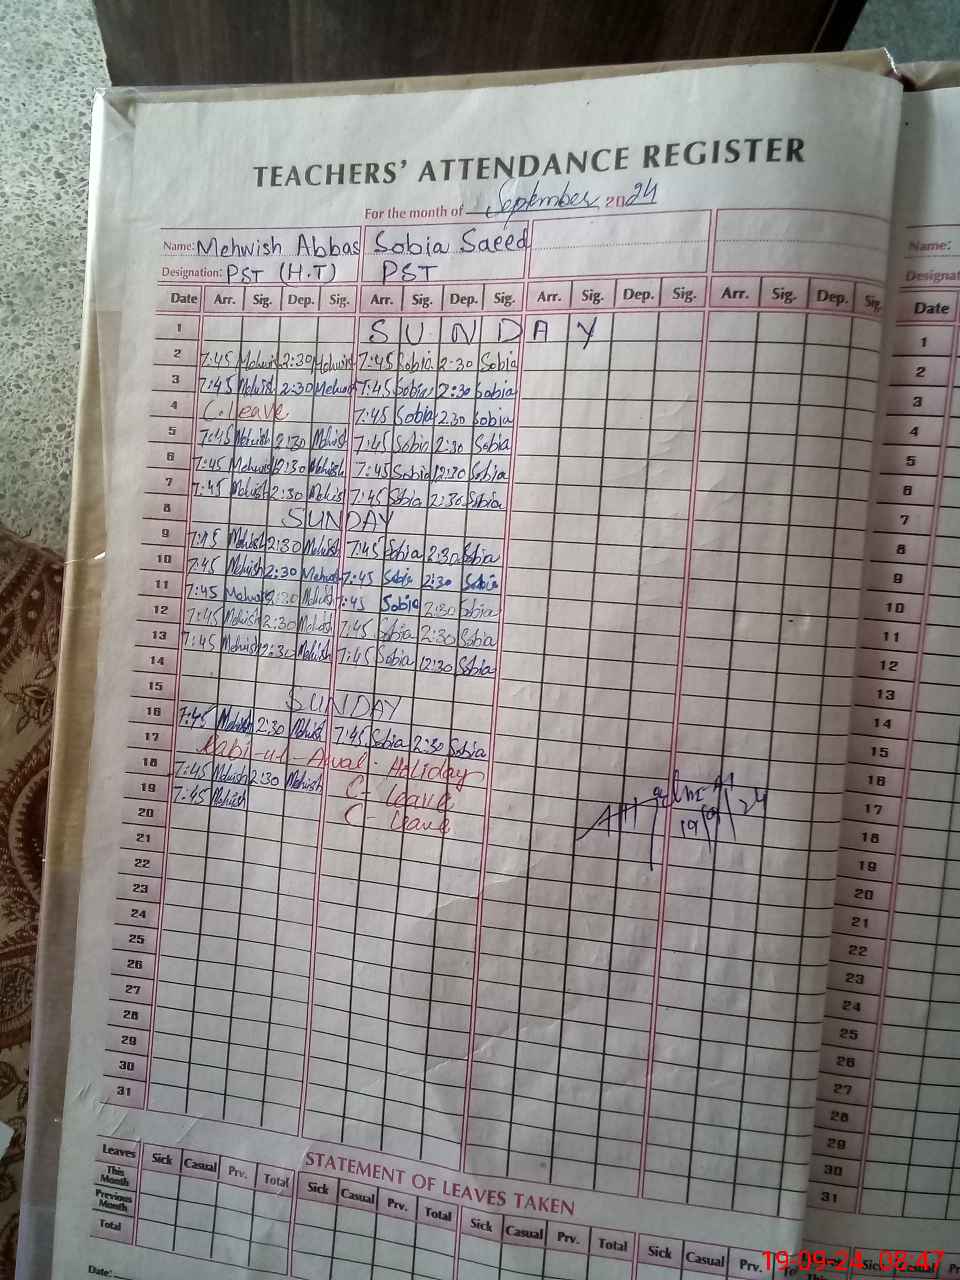 TEACHERS' ATTENDANCE REGISTER
For the month of September 2024
Name: Mehwish Abbas Sobia Saeed
Designation: PST (H.T) PST
Date Arr. Sig. Dep. Sig. Arr. Sig. Dep. Sig. Arr. Sig. Dep. Sig. Arr. Sig. Dep. Sig.
1 SUNDAY
2 7:45 Mehwish 2:30 Mehwish 7:45 Sobia 2:30 Sobia
3 7:45 Mehwish 2:30 Mehwish 7:45 Sobia 2:30 Sobia
4 C.leave 7:45 Sobia 2:30 Sobia
5 7:45 Mehwish 2:30 Mehwish 7:45 Sobia 2:30 Sobia
6 7:45 Mehwish 2:30 Mehwish 7:45 Sobia 2:30 Sobia
7 7:45 Mehwish 2:30 Mehwish 7:45 Sobia 2:30 Sobia
8 SUNDAY
9 7:45 Mehwish 2:30 Mehwish 7:45 Sobia 2:30 Sobia
10 7:45 Mehwish 2:30 Mehwish 7:45 Sobia 2:30 Sobia
11 7:45 Mehwish 2:30 Mehwish 7:45 Sobia 2:30 Sobia
12 7:45 Mehwish 2:30 Mehwish 7:45 Sobia 2:30 Sobia
13 7:45 Mehwish 2:30 Mehwish 7:45 Sobia 2:30 Sobia
14
15 SUNDAY
16 7:45 Mehwish 2:30 Mehwish 7:45 Sobia 2:30 Sobia
17 Rabi-ul-Awal. Holiday
18 7:45 Mehwish 2:30 Mehwish C- leave
19 7:45 Mehwish C- leave
19/9/24
20
21
22
23
24
25
26
27
28
29
30
31
STATEMENT OF LEAVES TAKEN
Leaves Sick Casual Prv. Total Sick Casual Prv. Total Sick Casual Prv. Total Sick Casual Prv.
This Month
Previous Month
Total
Date:
Name:
Date
1
2
3
4
5
6
7
8
9
10
11
12
13
14
15
16
17
18
19
20
21
22
23
24
25
26
27
28
29
30
31
Sick
19-09-24 08:47